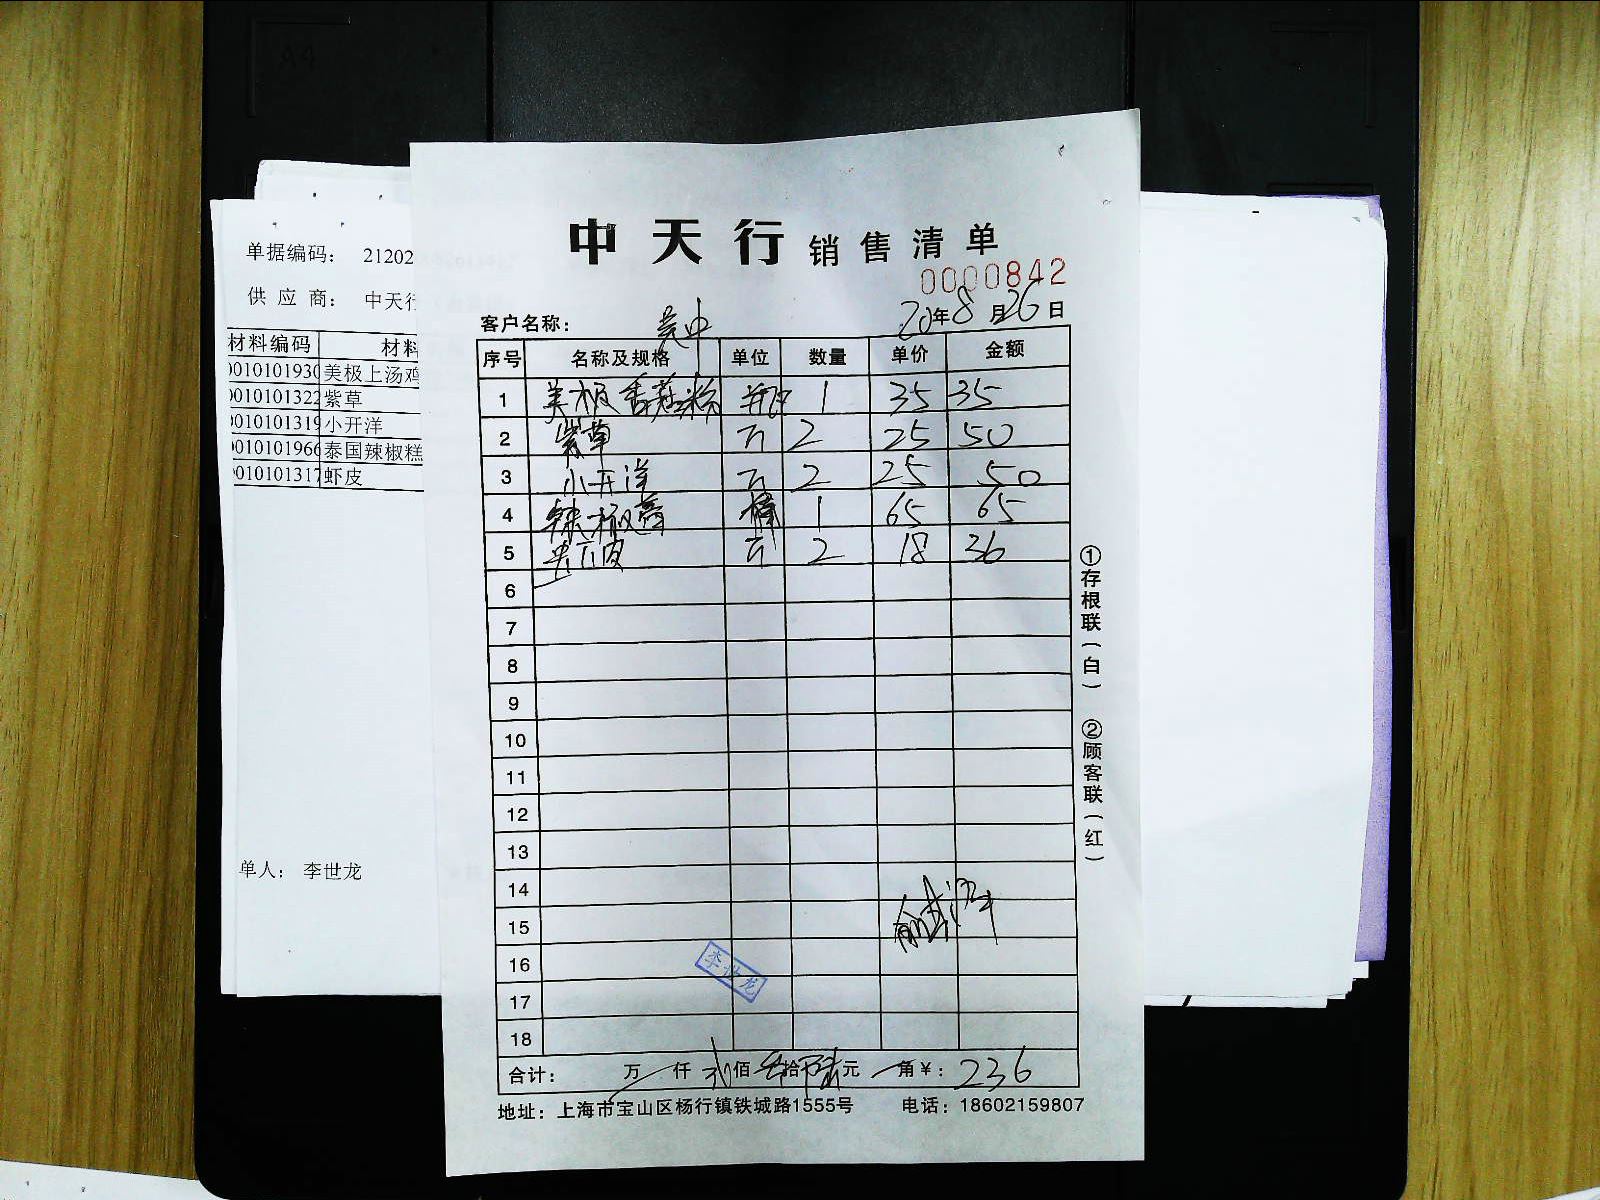 中天行 销售清单
0000842
客户名称： 吴中 20年8月26日
序号 名称及规格 单位 数量 单价 金额
1 美极香菇粉 瓶 1 35 35
2 紫草 斤 2 25 50
3 小开洋 斤 2 25 50
4 辣椒膏 桶 1 65 65
5 虾皮 斤 2 18 36
6
7
8
9
10
11
12
13
14
15
16
17
18
李世龙
合计： 万 仟 贰佰叁拾陆元 角¥：236
地址：上海市宝山区杨行镇铁城路1555号 电话：18602159807
①存根联（白） ②顾客联（红）
单据编码： 21202
供应商： 中天行
材料编码 材料
0010101930 美极上汤鸡
0010101322 紫草
0010101319 小开洋
0010101966 泰国辣椒糕
0010101317 虾皮
单人： 李世龙